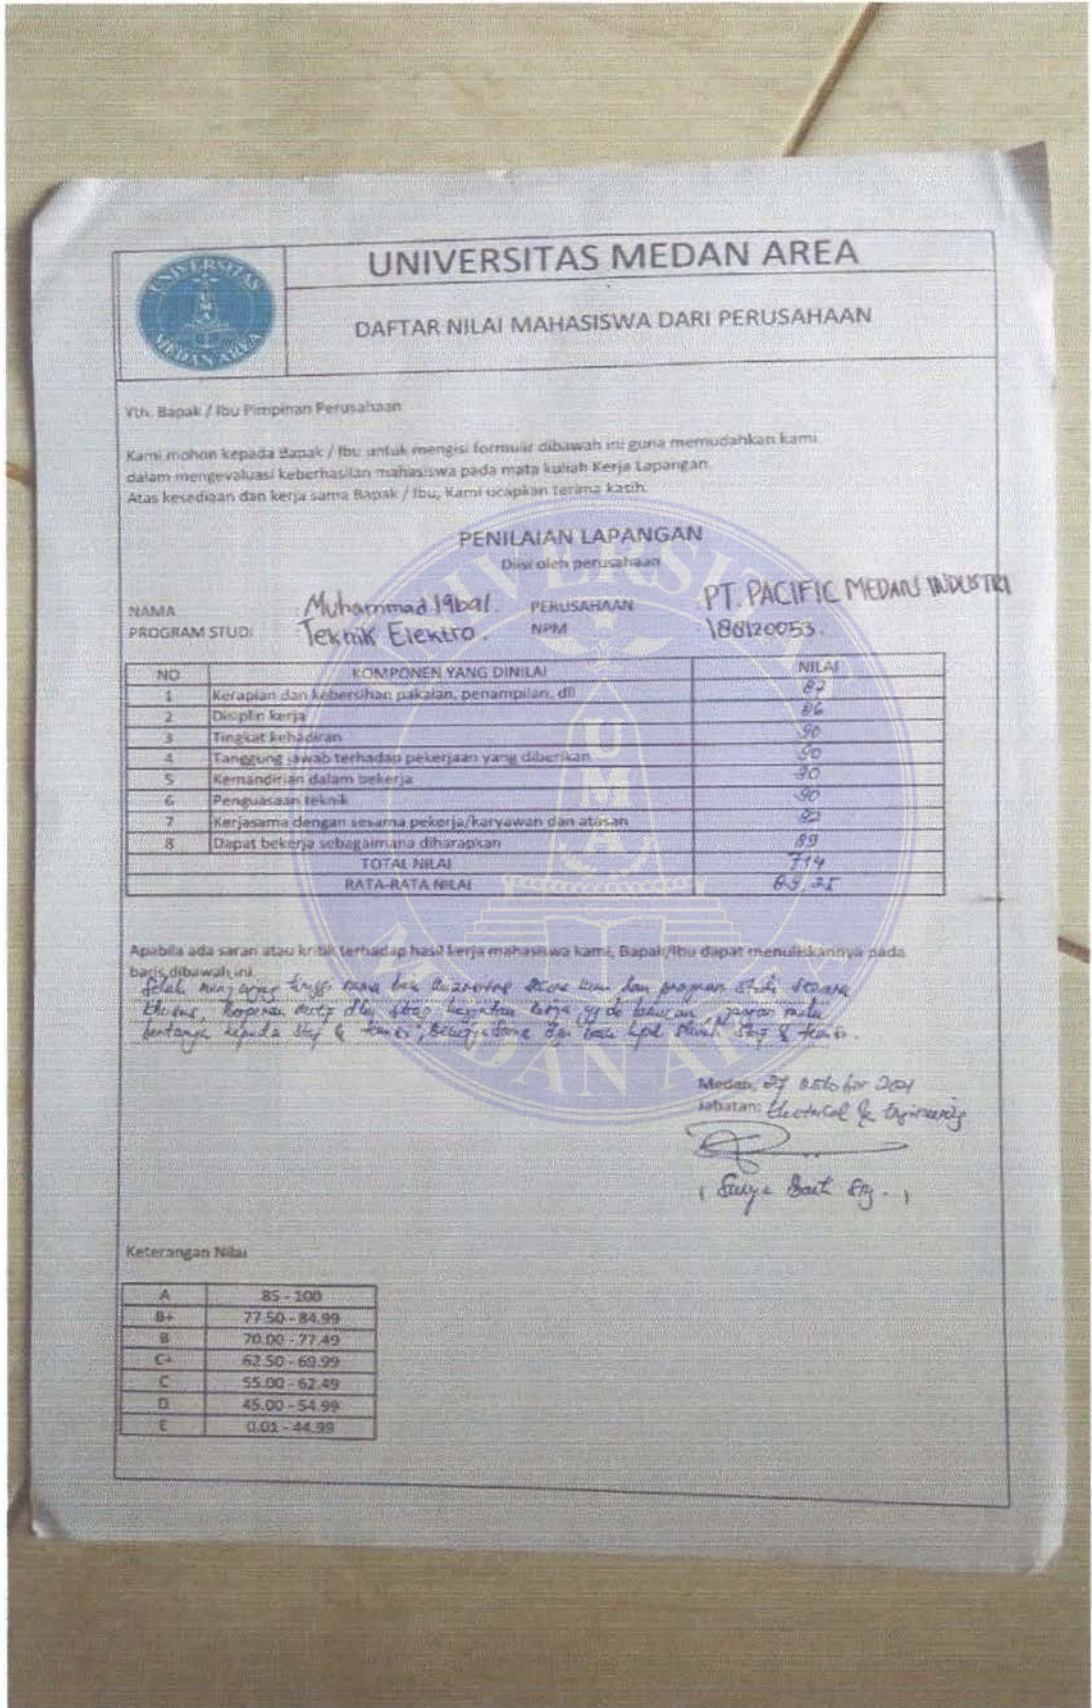 UNIVERSITAS MEDAN AREA
UNIVERSITAS MEDAN AREA
DAFTAR NILAI MAHASISWA DARI PERUSAHAAN
Yth. Bapak / Ibu Pimpinan Perusahaan
Kami mohon kepada Bapak / Ibu untuk mengisi formulir dibawah ini guna memudahkan kami
dalam mengevaluasi keberhasilan mahasiswa pada mata kuliah Kerja Lapangan.
Atas kesediaan dan kerja sama Bapak / Ibu, Kami ucapkan terima kasih.
PENILAIAN LAPANGAN
Diisi oleh perusahaan
NAMA : Muhammad Iqbal. PERUSAHAAN : PT. PACIFIC MEDAN INDUSTRI
PROGRAM STUDI : Teknik Elektro. NPM : 188120053.
NO KOMPONEN YANG DINILAI NILAI
1 Kerapian dan kebersihan pakaian, penampilan, dll 87
2 Disiplin kerja 86
3 Tingkat kehadiran 90
4 Tanggung jawab terhadap pekerjaan yang diberikan 90
5 Kemandirian dalam bekerja 90
6 Penguasaan teknik 90
7 Kerjasama dengan sesama pekerja/karyawan dan atasan 92
8 Dapat bekerja sebagaimana diharapkan 89
TOTAL NILAI 714
RATA-RATA NILAI 89,25
Apabila ada saran atau kritik terhadap hasil kerja mahasiswa kami, Bapak/Ibu dapat menuliskannya pada
baris dibawah ini.
tinggi nama baik dan program studi secara
kegiatan kerja yg di lakukan
bertanya kepada staf & teknisi, staf & teknisi.
Medan, 27 Oktober 2021
Jabatan: Electrical & Engineering
( Surya )
Keterangan Nilai
A 85 - 100
B+ 77.50 - 84.99
B 70.00 - 77.49
C+ 62.50 - 69.99
C 55.00 - 62.49
D 45.00 - 54.99
E 0.01 - 44.99
UNIVERSITAS MEDAN AREA
UMA